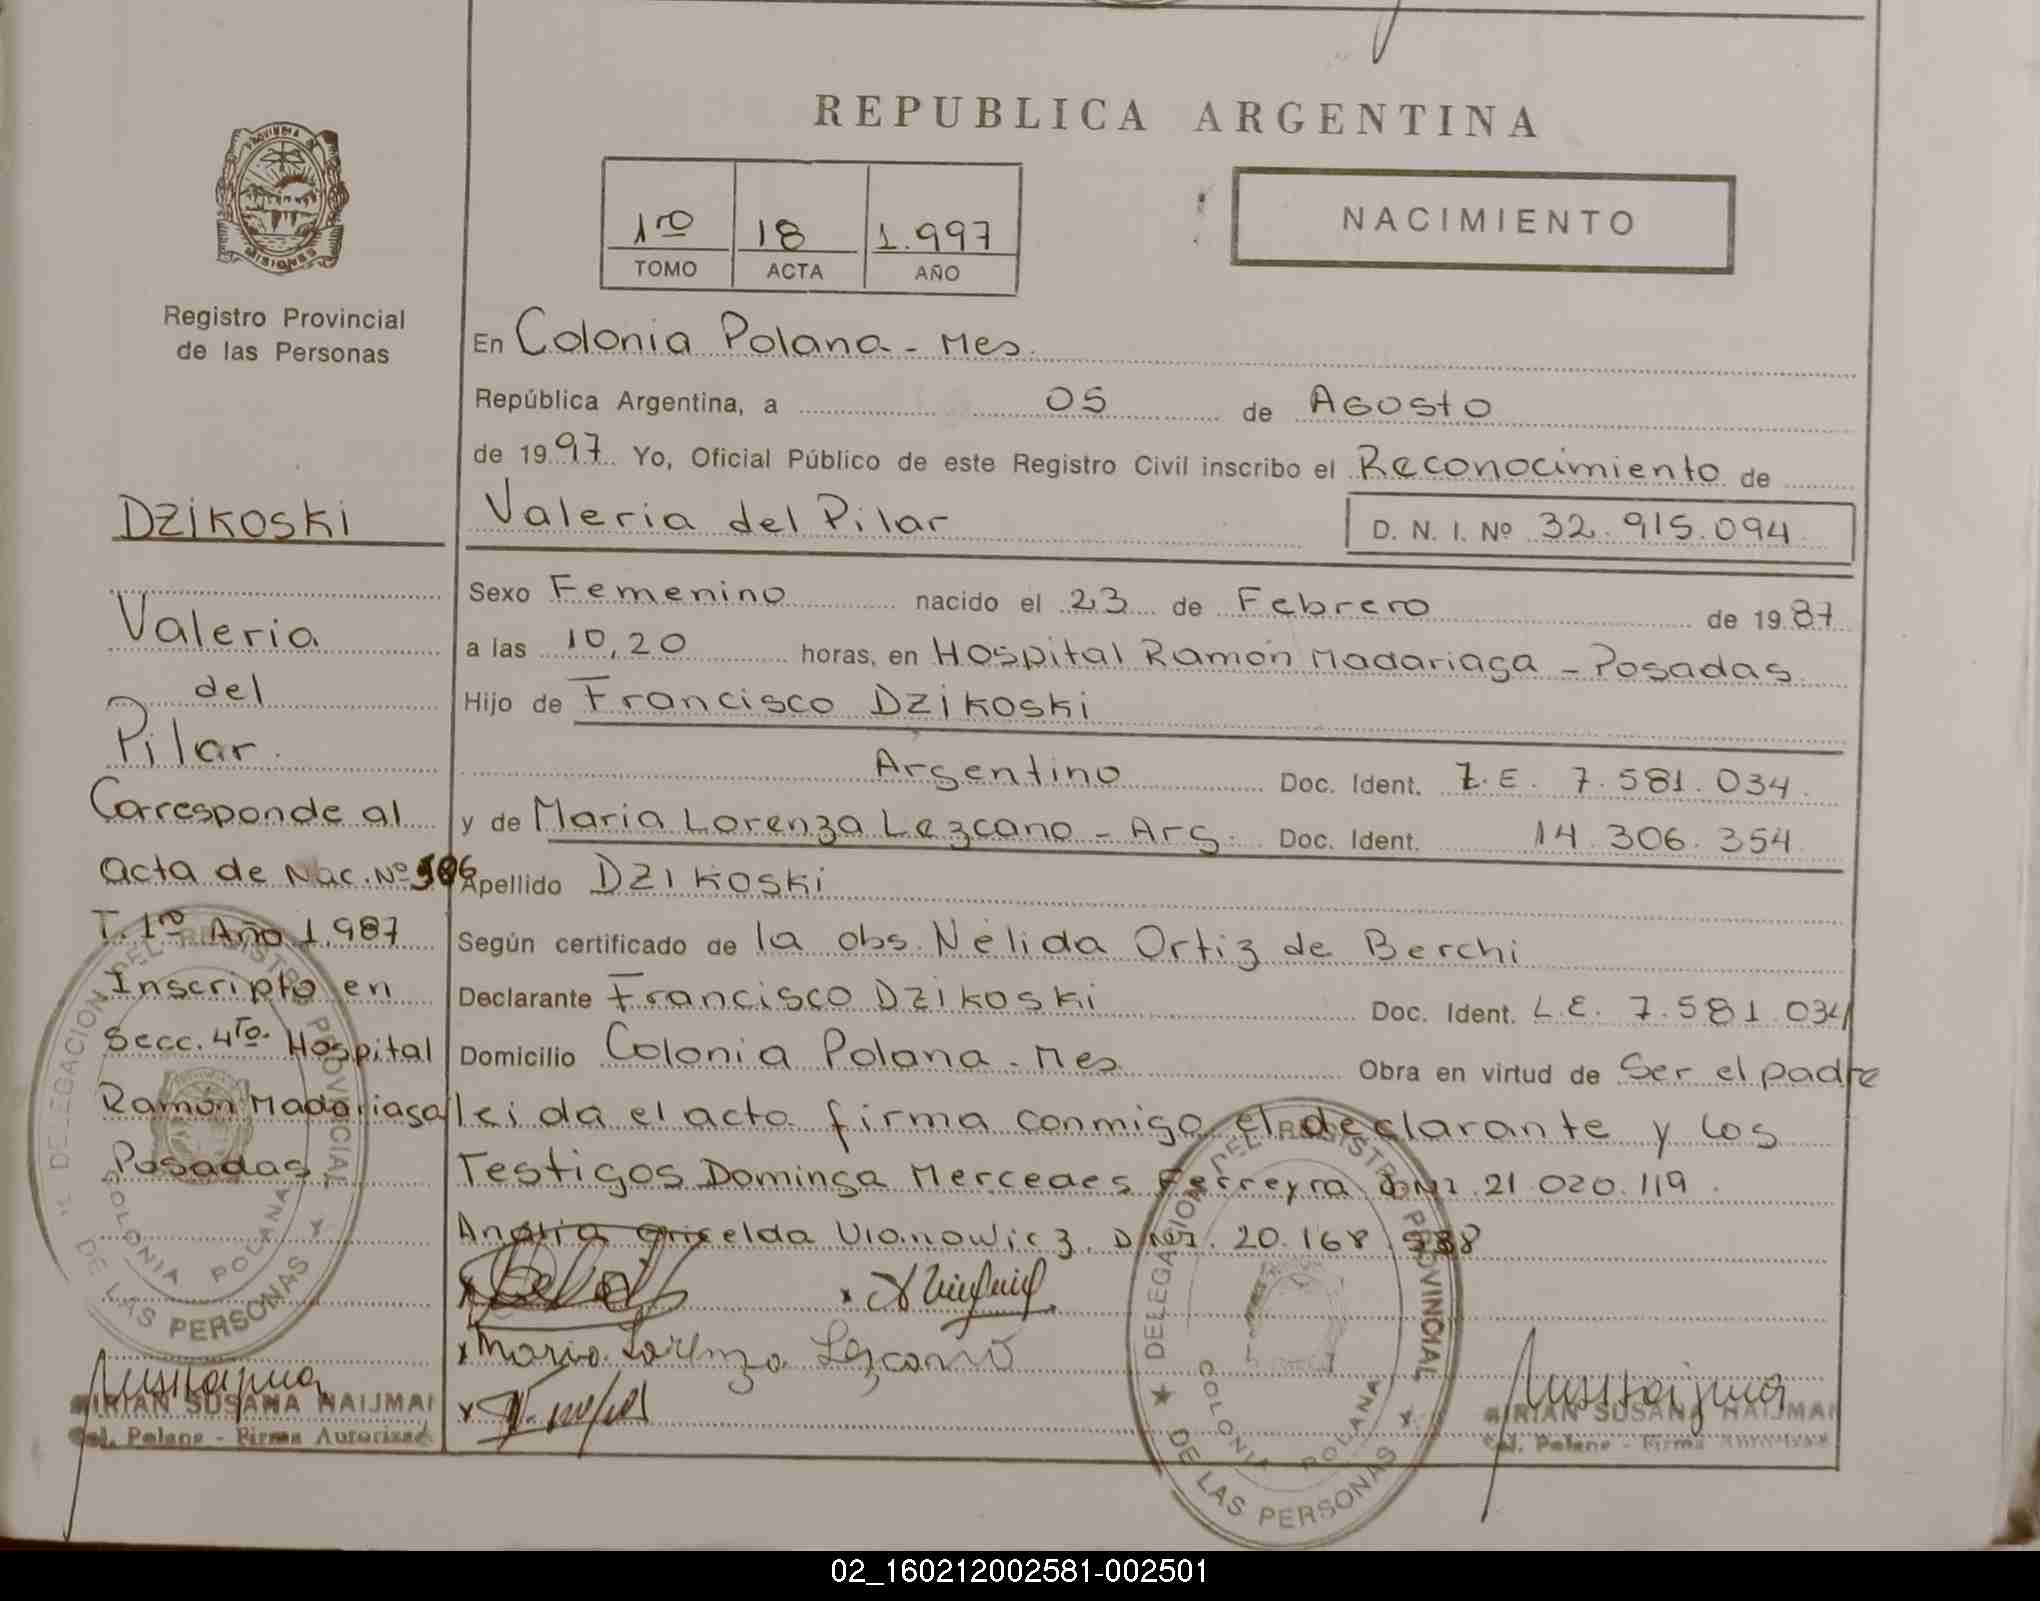 REPUBLICA ARGENTINA
PROVINCIA DE MISIONES
Registro Provincial
de las Personas
1ro 18 1.997
TOMO ACTA AÑO
NACIMIENTO
En Colonia Polana - Mes.
República Argentina, a 05 de Agosto
de 1997 Yo, Oficial Público de este Registro Civil inscribo el Reconocimiento de
Valeria del Pilar
D. N. I. Nº 32.915.094
Sexo Femenino nacido el 23 de Febrero de 1987
a las 10,20 horas, en Hospital Ramón Madariaga - Posadas
Hijo de Francisco Dzikoski
Argentino Doc. Ident. L.E. 7.581.034.
y de Maria Lorenza Lezcano - Arg. Doc. Ident. 14.306.354
Apellido Dzikoski
Según certificado de la obs. Nélida Ortiz de Berchi
Declarante Francisco Dzikoski Doc. Ident. L.E. 7.581.034
Domicilio Colonia Polana - Mes Obra en virtud de Ser el padre
leida el acta firma conmigo el declarante y los
Testigos Dominga Mercedes Ferreyra DNI. 21.020.119.
Griselda DNI. 20.168
x
x Maria Lorenza Lezcano
x
DZIKOSKI
Valeria
del
Pilar.
Corresponde al
acta de Nac. Nº 506
T. 1ro Año 1.987
Inscripto en
Secc. 4to. Hospital
Ramón Madariaga
Posadas
DELEGACION DEL REGISTRO PROVINCIAL
DE LAS PERSONAS
COLONIA POLANA
MIRIAN SUSANA NAIJMAN
Col. Polana - Firma Autorizad
DELEGACION DEL REGISTRO PROVINCIAL
DE LAS PERSONAS
COLONIA POLANA
MIRIAN SUSANA NAIJMAN
Col. Polana - Firma
02_160212002581-002501